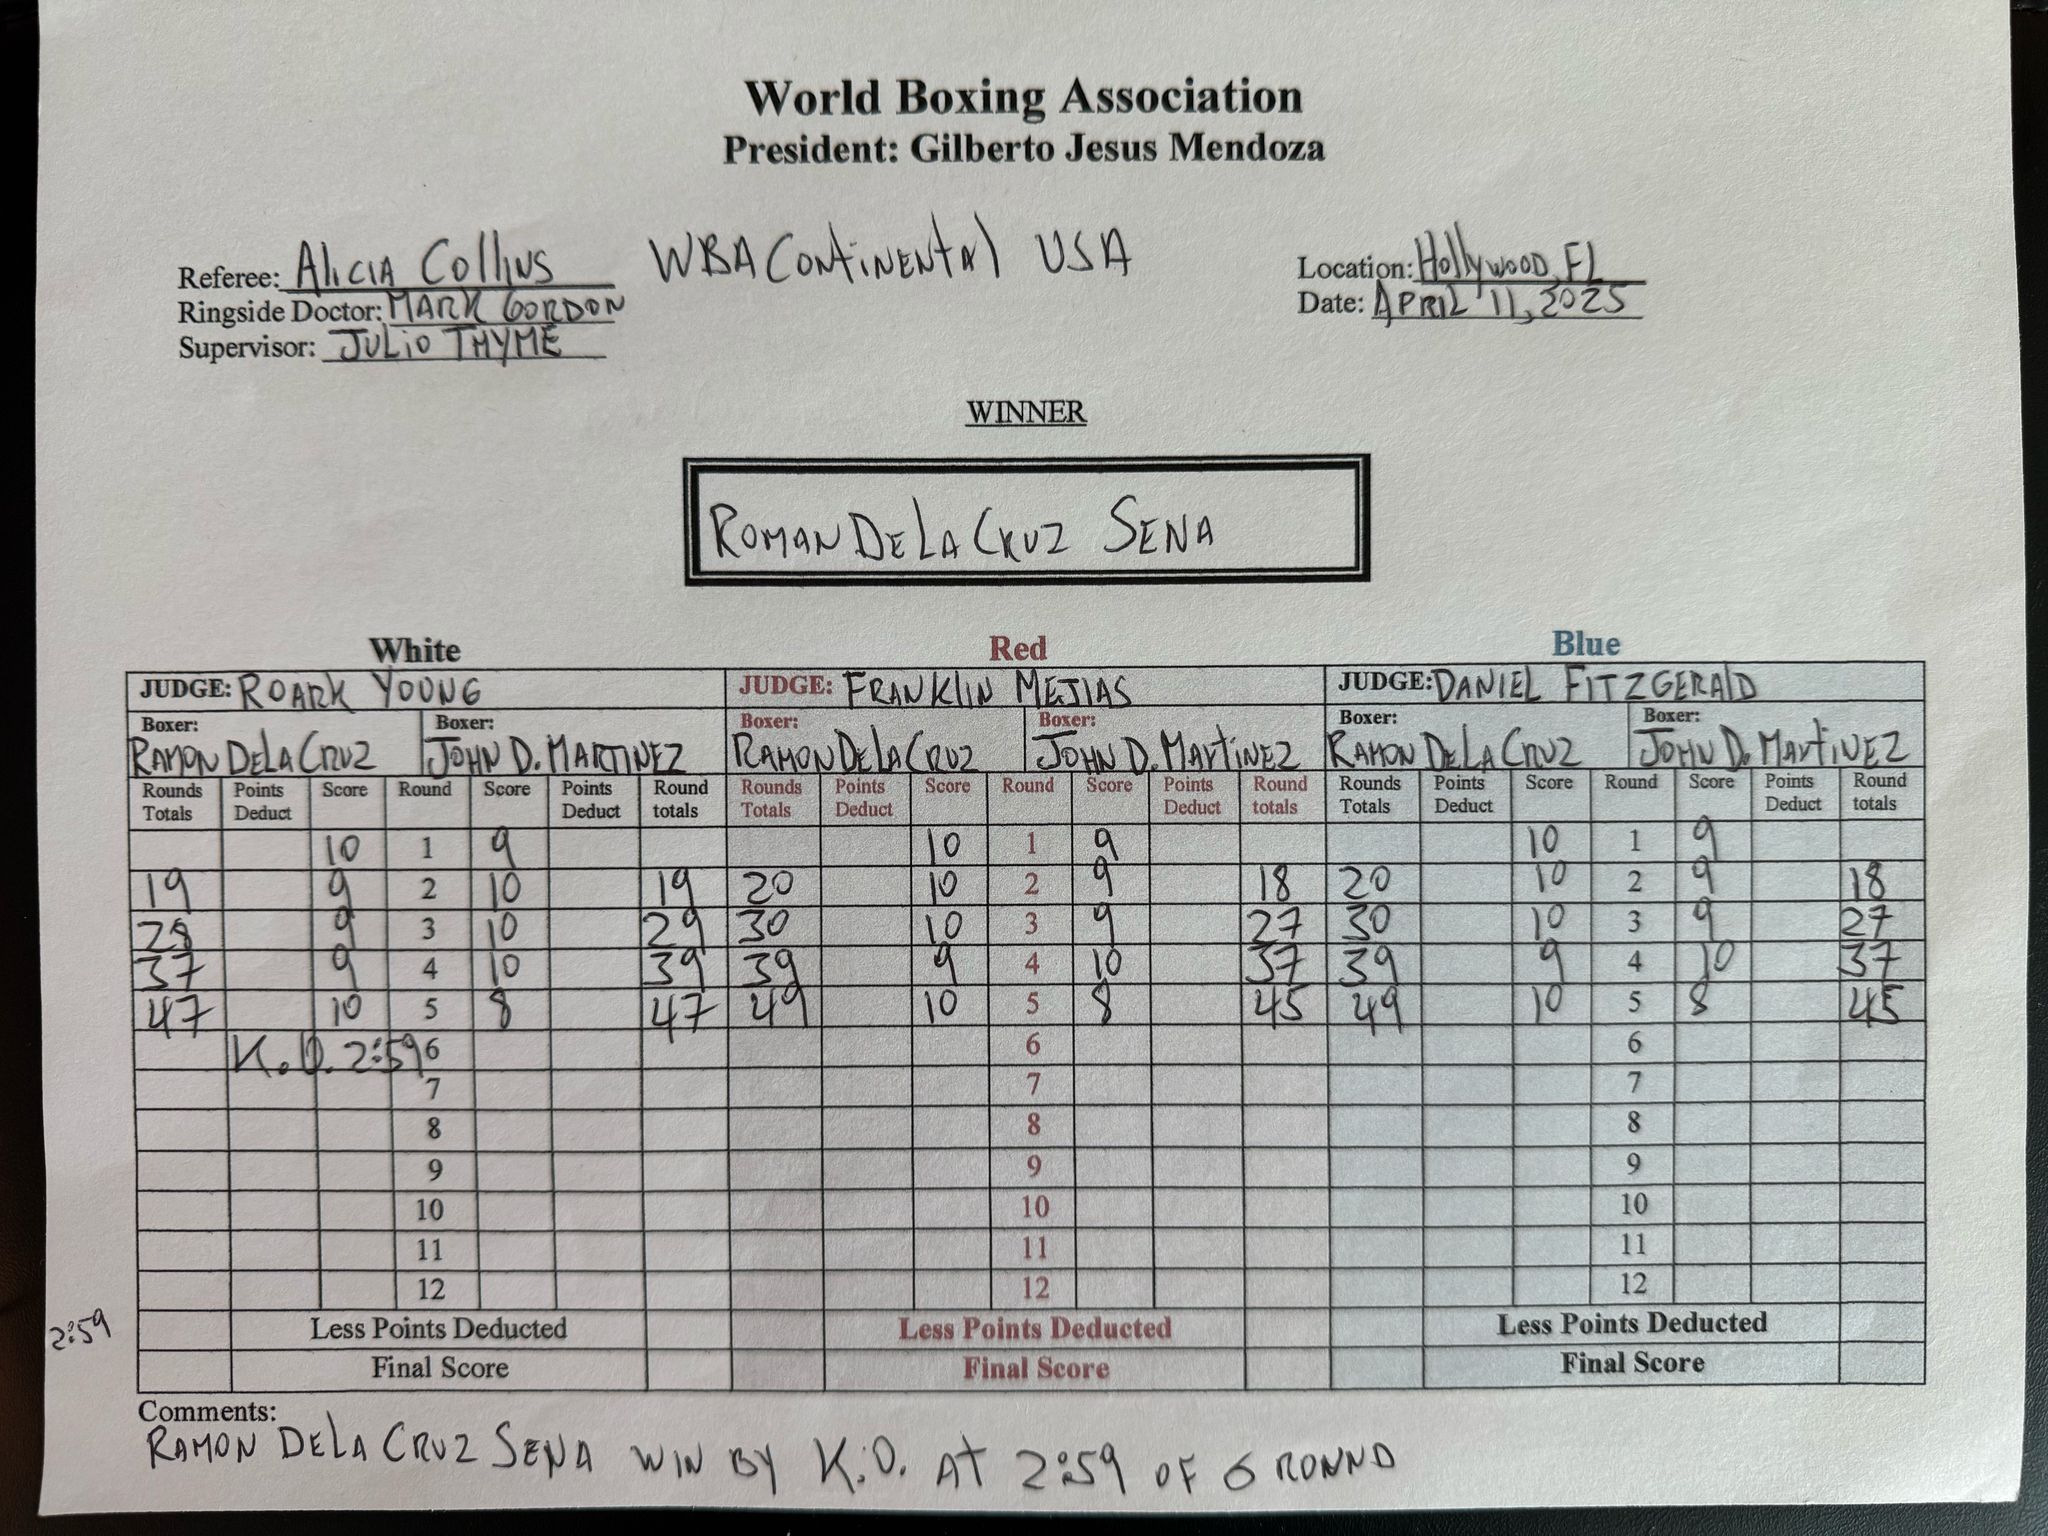 World Boxing Association
President: Gilberto Jesus Mendoza
Referee: Alicia Collins WBA Continental USA Location: Hollywood, FL
Ringside Doctor: MARK GORDON Date: APRIL 11, 2025
Supervisor: JULIO THYME
WINNER
ROMAN DE LA CRUZ SENA
White Red Blue
JUDGE: ROARK YOUNG JUDGE: FRANKLIN MEJIAS JUDGE: DANIEL FITZGERALD
Boxer: Boxer: Boxer: Boxer: Boxer: Boxer:
RAMON DE LA CRUZ JOHN D. MARTINEZ RAMON DE LA CRUZ JOHN D. MARTINEZ RAMON DE LA CRUZ JOHN D. MARTINEZ
Rounds Points Score Round Score Points Round Rounds Points Score Round Score Points Round Rounds Points Score Round Score Points Round
Totals Deduct Deduct totals Totals Deduct Deduct totals Totals Deduct Deduct totals
10 1 9 10 1 9 10 1 9
19 9 2 10 19 20 10 2 9 18 20 10 2 9 18
28 9 3 10 29 30 10 3 9 27 30 10 3 9 27
37 9 4 10 39 39 9 4 10 37 39 9 4 10 37
47 10 5 8 47 49 10 5 8 45 49 10 5 8 45
K.O. 2:59 6 6 6
7 7 7
8 8 8
9 9 9
10 10 10
11 11 11
12 12 12
2:59 Less Points Deducted Less Points Deducted Less Points Deducted
Final Score Final Score Final Score
Comments:
RAMON DE LA CRUZ SENA WIN BY K.O. AT 2:59 OF 6 ROUND